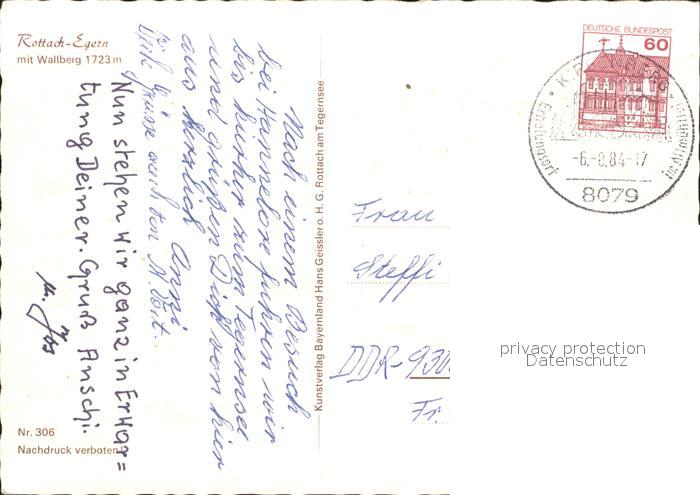 Rottach-Egern
mit Wallberg 1723 m
Nach einem Besuch
bei Hannelore fuhren wir
bis hierher zum Tegernsee
und grüßen Dich von hier
aus herzlich Anni
Viele Grüsse auch von
Nun stehen wir ganz in Erwar=
tung Deiner. Gruß Anschi.
u. Jos
Nr. 306
Nachdruck verboten
Kunstverlag Bayernland Hans Geissler o. H. G. Rottach am Tegernsee
DEUTSCHE BUNDESPOST
60
Erholungsort
im Altmühltal
-6.-9.84-17
8079
Frau
Steffi
DDR-930
Fr.
privacy protection
Datenschutz